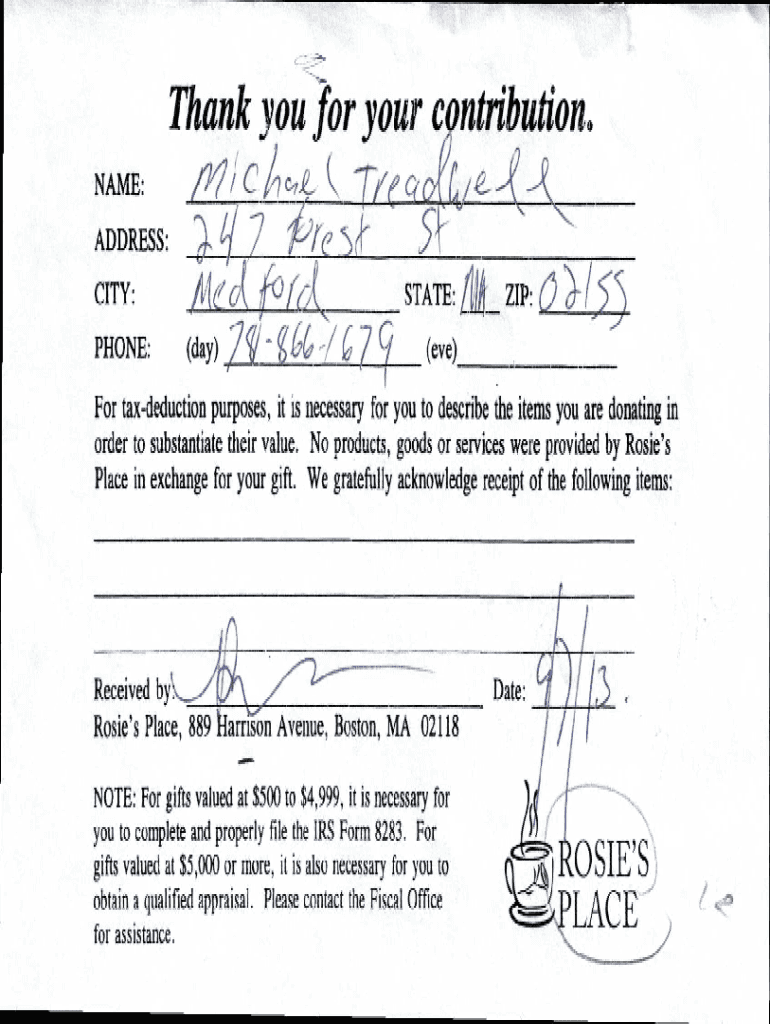 Thank you for your contribution.
NAME: Michael Treadwell
ADDRESS: 247 Forest St
CITY: Medford STATE: MA ZIP: 02155
PHONE: (day) 781-866-1679 (eve)
For tax-deduction purposes, it is necessary for you to describe the items you are donating in
order to substantiate their value. No products, goods or services were provided by Rosie's
Place in exchange for your gift. We gratefully acknowledge receipt of the following items:
Received by: Date: 9/7/13
Rosie's Place, 889 Harrison Avenue, Boston, MA 02118
NOTE: For gifts valued at $500 to $4,999, it is necessary for
you to complete and properly file the IRS Form 8283. For
gifts valued at $5,000 or more, it is also necessary for you to
obtain a qualified appraisal. Please contact the Fiscal Office
for assistance.
ROSIE'S
PLACE